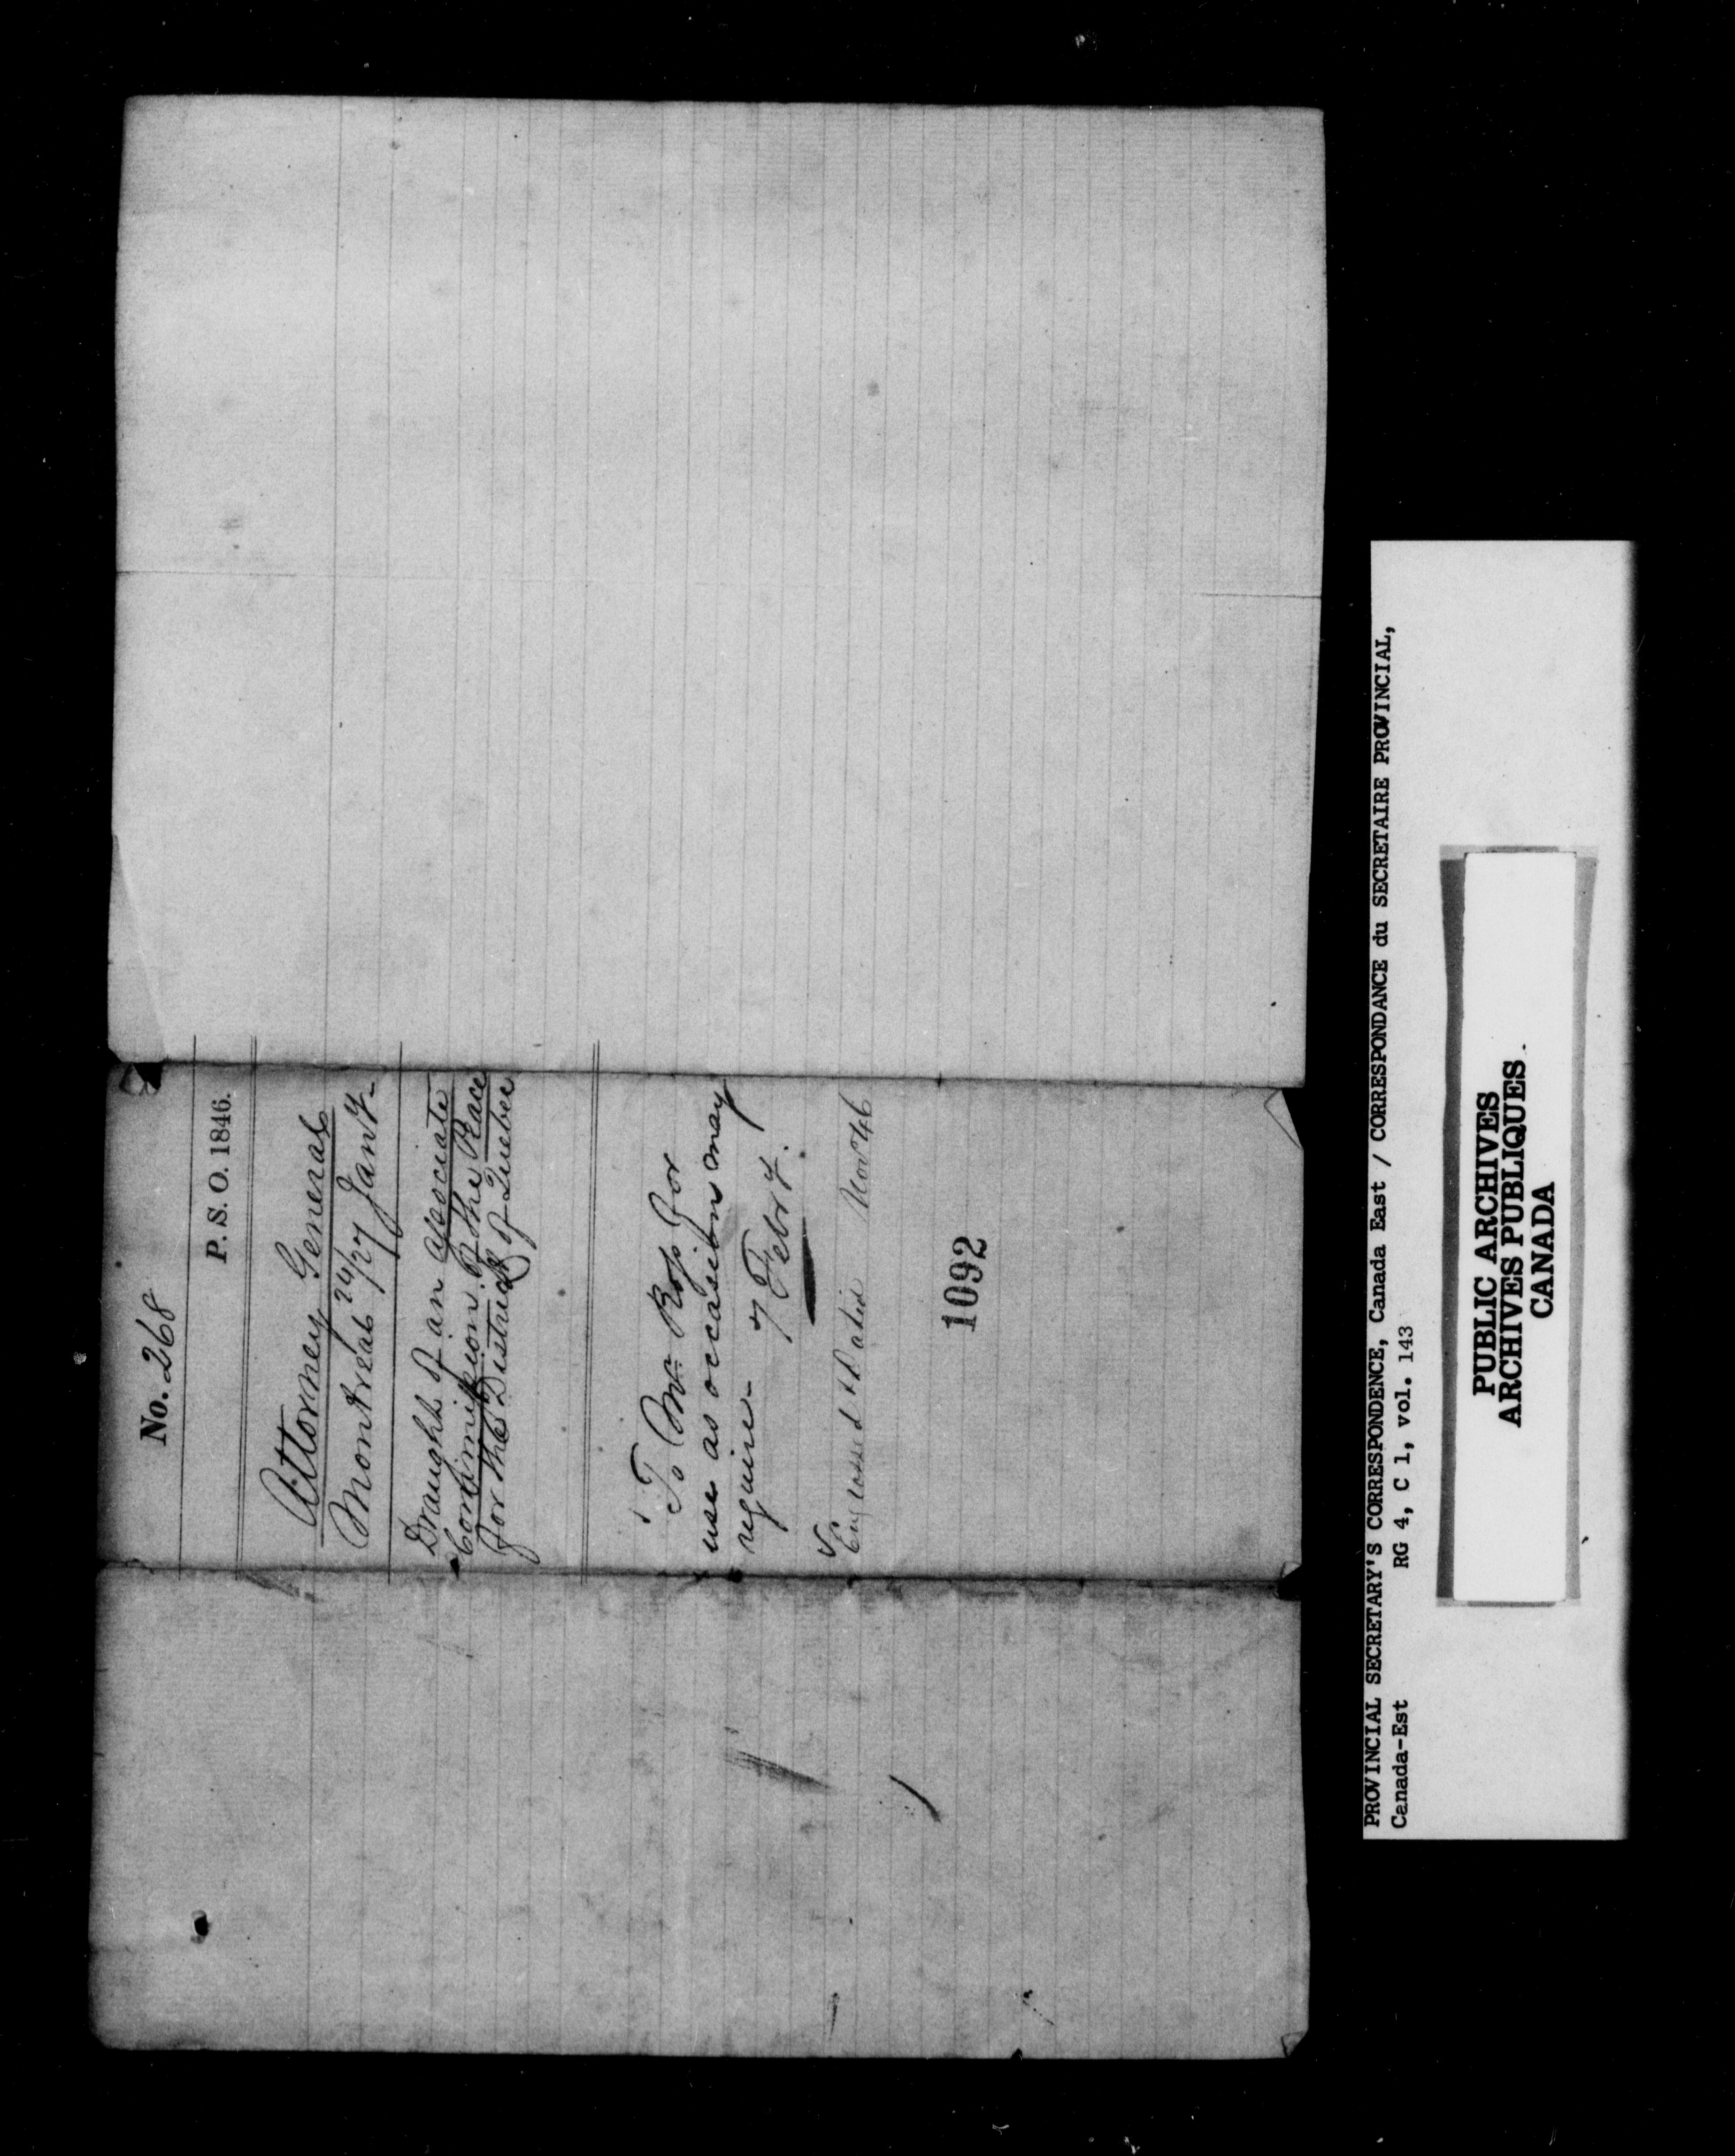 No. 268
P. S. O. 1846.
Attorney General
Montreal 24/27 Jany.
Draught of an Associate
Commission of the Peace
for the District of Quebec
To Mr. Ross for
use as occasion may
require -
7 Febry.
Engrossed & Nov 46
1092
PROVINCIAL SECRETARY'S CORRESPONDENCE, Canada East / CORRESPONDANCE du SECRETAIRE PROVINCIAL,
Canada-Est RG 4, C 1, vol. 143
PUBLIC ARCHIVES
ARCHIVES PUBLIQUES
CANADA